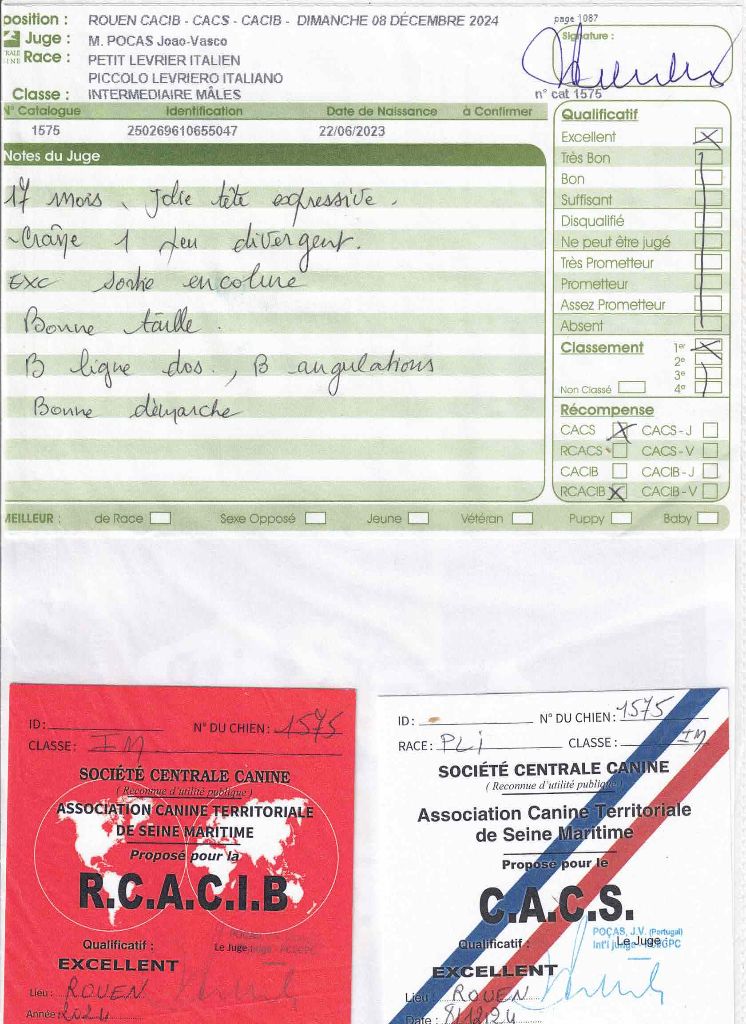 position : ROUEN CACIB - CACS - CACIB - DIMANCHE 08 DÉCEMBRE 2024
page 1087
Juge : M. POCAS Joao-Vasco
Signature :
Race : PETIT LEVRIER ITALIEN
PICCOLO LEVRIERO ITALIANO
Classe : INTERMEDIAIRE MÂLES
n° cat 1575
N° Catalogue Identification Date de Naissance à Confirmer
1575 250269610655047 22/06/2023
Notes du Juge
17 mois, Jolie tête expressive.
- Crâne 1 peu divergent.
Exc sortie encolure
Bonne taille.
B ligne dos., B angulations
Bonne démarche
Qualificatif
Excellent X
Très Bon
Bon
Suffisant
Disqualifié
Ne peut être jugé
Très Prometteur
Prometteur
Assez Prometteur
Absent
Classement 1er X
2e
3e
Non Classé 4e
Récompense
CACS X CACS - J
RCACS CACS - V
CACIB CACIB - J
RCACIB X CACIB - V
MEILLEUR : de Race Sexe Opposé Jeune Vétéran Puppy Baby
ID : N° DU CHIEN : 1575
CLASSE : IM
SOCIÉTÉ CENTRALE CANINE
( Reconnue d'utilité publique )
ASSOCIATION CANINE TERRITORIALE
DE SEINE MARITIME
Proposé pour la
R.C.A.C.I.B
Qualificatif : Le Juge
EXCELLENT
Lieu : ROUEN
Année : 2024
ID : N° DU CHIEN : 1575
RACE : PLI CLASSE : IM
SOCIÉTÉ CENTRALE CANINE
( Reconnue d'utilité publique )
Association Canine Territoriale
de Seine Maritime
Proposé pour le
C.A.C.S.
POÇAS, J.V. (Portugal)
Qualificatif : Le Juge :
EXCELLENT
Lieu : ROUEN
Date : 8/12/24